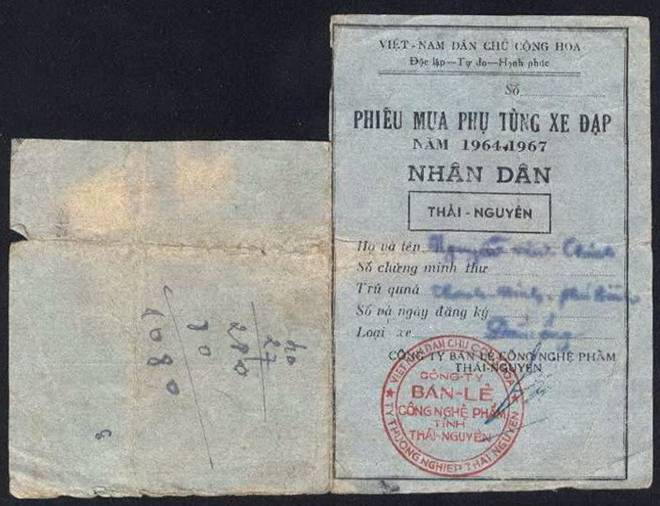 VIỆT-NAM DÂN CHỦ CỘNG HÒA
Độc lập—Tự do—Hạnh phúc
Số
PHIẾU MUA PHỤ TÙNG XE ĐẠP
NĂM 1964-1967
NHÂN DÂN
THÁI-NGUYÊN
Họ và tên Nguyễn văn
Số chứng minh thư
Trú quán
Số và ngày đăng ký
Loại xe
CÔNG TY BÁN LẺ CÔNG NGHỆ PHẨM
THÁI-NGUYÊN
VIỆT NAM DÂN CHỦ CỘNG HÒA
CÔNG-TY
BÁN-LẺ
CÔNG NGHỆ PHẨM
TỈNH
THÁI-NGUYÊN
TY THƯƠNG NGHIỆP THÁI NGUYÊN
40
27
280
80
1080
8